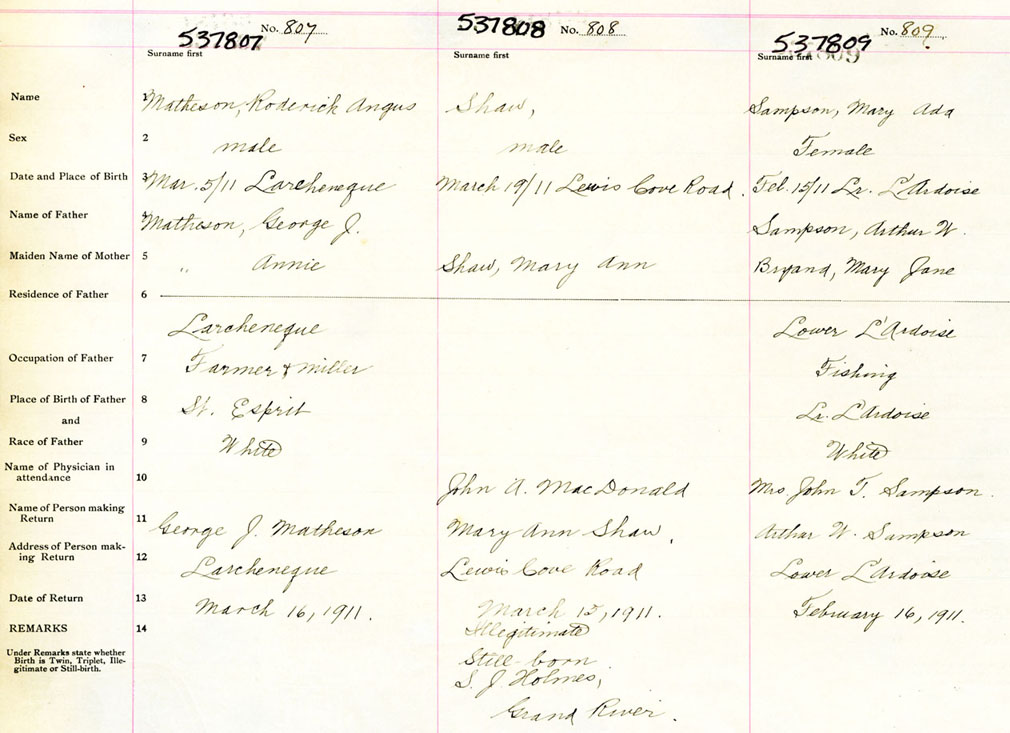 No. 807
537807
Surname first
No. 808
537808
Surname first
No. 809
537809
Surname first
Name 1 Matheson, Roderick Angus
Shaw,
Sampson, Mary Ada
Sex 2 male
male
Female
Date and Place of Birth 3 Mar. 5/11 Larcheneque
March 19/11 Lewis Cove Road.
Feb. 15/11 Lr. L'Ardoise
Name of Father 4 Matheson, George J.
Sampson, Arthur W.
Maiden Name of Mother 5 " Annie
Shaw, Mary Ann
Bryand, Mary Jane
Residence of Father 6
Larcheneque
Lower L'Ardoise
Occupation of Father 7 Farmer & miller
Fishing
Place of Birth of Father 8 St. Esprit
Lr. L'Ardoise
and
Race of Father 9 White
White
Name of Physician in
attendance 10
John A. MacDonald
Mrs. John T. Sampson.
Name of Person making
Return 11 George J. Matheson
Mary Ann Shaw,
Arthur W. Sampson
Address of Person mak-
ing Return 12 Larcheneque
Lewis Cove Road
Lower L'Ardoise
Date of Return 13 March 16, 1911.
March 15, 1911.
February 16, 1911.
REMARKS 14
Illegitimate
Still-born
S. J. Holmes,
Grand River.
Under Remarks state whether
Birth is Twin, Triplet, Ille-
gitimate or Still-birth.